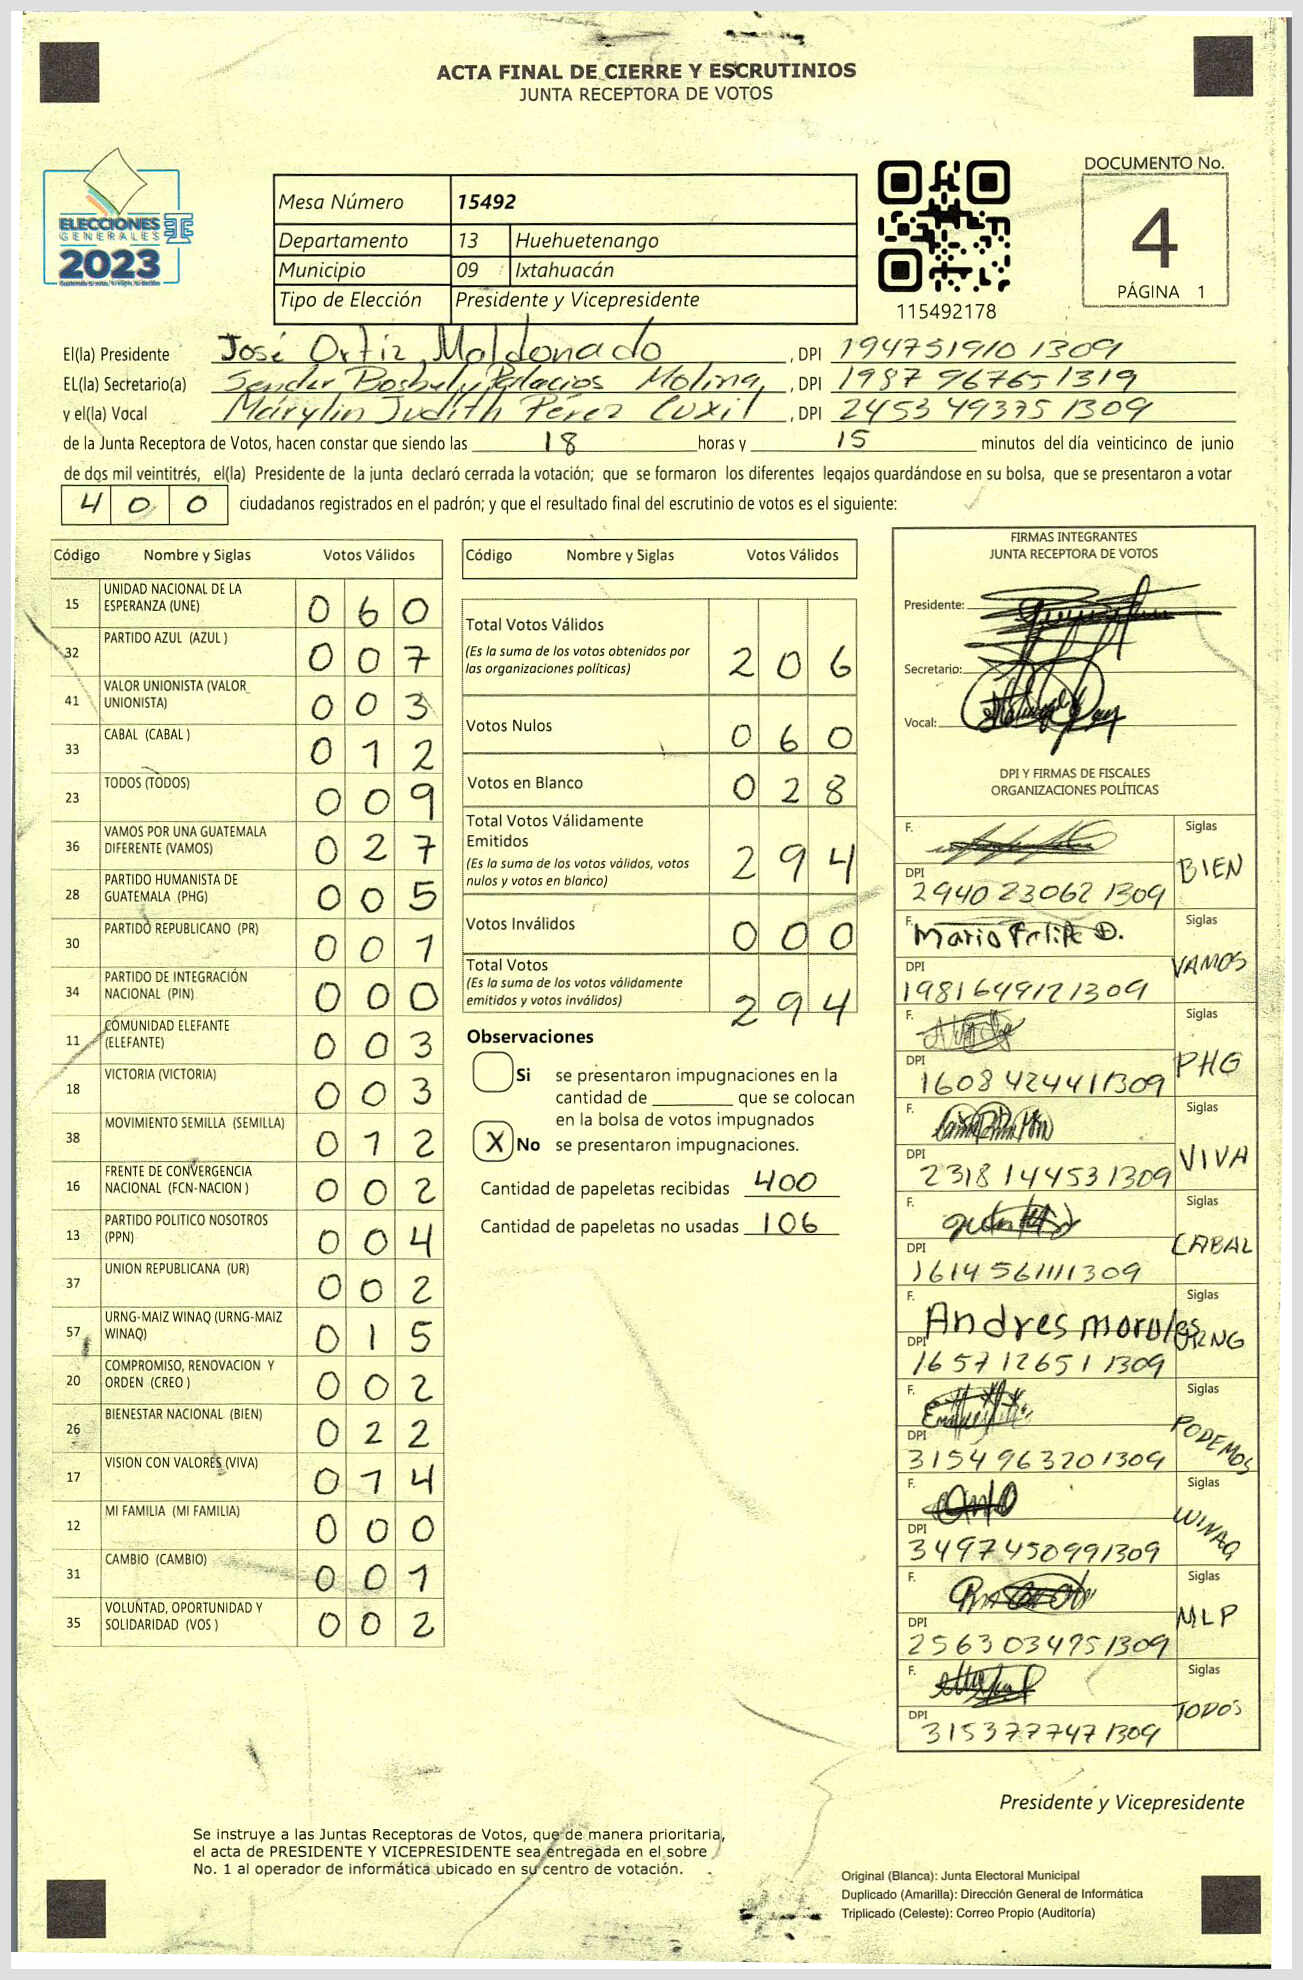 ACTA FINAL DE CIERRE Y ESCRUTINIOS
JUNTA RECEPTORA DE VOTOS
ELECCIONES
GENERALES
2023
Mesa Número 15492
Departamento 13 Huehuetenango
Municipio 09 Ixtahuacán
Tipo de Elección Presidente y Vicepresidente
115492178
DOCUMENTO No.
4
PÁGINA 1
El(la) Presidente José Ortiz Maldonado, DPI 194751910 1309
EL(la) Secretario(a) Sender Bosbely Palacios Molina, DPI 1987 96765 1319
y el(la) Vocal Marylin Judith Pérez Cuxil, DPI 2453 49375 1309
de la Junta Receptora de Votos, hacen constar que siendo las 18 horas y 15 minutos del día veinticinco de junio
de dos mil veintitrés, el(la) Presidente de la junta declaró cerrada la votación; que se formaron los diferentes legajos guardándose en su bolsa, que se presentaron a votar
400 ciudadanos registrados en el padrón; y que el resultado final del escrutinio de votos es el siguiente:
Código Nombre y Siglas Votos Válidos
15 UNIDAD NACIONAL DE LA ESPERANZA (UNE) 060
32 PARTIDO AZUL (AZUL ) 007
41 VALOR UNIONISTA (VALOR UNIONISTA) 003
33 CABAL (CABAL ) 012
23 TODOS (TODOS) 009
36 VAMOS POR UNA GUATEMALA DIFERENTE (VAMOS) 027
28 PARTIDO HUMANISTA DE GUATEMALA (PHG) 005
30 PARTIDO REPUBLICANO (PR) 001
34 PARTIDO DE INTEGRACIÓN NACIONAL (PIN) 000
11 COMUNIDAD ELEFANTE (ELEFANTE) 003
18 VICTORIA (VICTORIA) 003
38 MOVIMIENTO SEMILLA (SEMILLA) 012
16 FRENTE DE CONVERGENCIA NACIONAL (FCN-NACION ) 002
13 PARTIDO POLITICO NOSOTROS (PPN) 004
37 UNION REPUBLICANA (UR) 002
57 URNG-MAIZ WINAQ (URNG-MAIZ WINAQ) 015
20 COMPROMISO, RENOVACION Y ORDEN (CREO ) 002
26 BIENESTAR NACIONAL (BIEN) 022
17 VISION CON VALORES (VIVA) 014
12 MI FAMILIA (MI FAMILIA) 000
31 CAMBIO (CAMBIO) 001
35 VOLUNTAD, OPORTUNIDAD Y SOLIDARIDAD (VOS ) 002
Código Nombre y Siglas Votos Válidos
Total Votos Válidos 206
(Es la suma de los votos obtenidos por
las organizaciones políticas)
Votos Nulos 060
Votos en Blanco 028
Total Votos Válidamente
Emitidos 294
(Es la suma de los votos válidos, votos
nulos y votos en blanco)
Votos Inválidos 000
Total Votos
(Es la suma de los votos válidamente
emitidos y votos inválidos) 294
Observaciones
Si se presentaron impugnaciones en la
cantidad de que se colocan
en la bolsa de votos impugnados
X No se presentaron impugnaciones.
Cantidad de papeletas recibidas 400
Cantidad de papeletas no usadas 106
FIRMAS INTEGRANTES
JUNTA RECEPTORA DE VOTOS
Presidente:
Secretario:
Vocal:
DPI Y FIRMAS DE FISCALES
ORGANIZACIONES POLÍTICAS
F. Siglas
BIEN
DPI
2940 23062 1309
F. Mario Felipe D. Siglas
VAMOS
DPI
1981649121309
F. Siglas
PHG
DPI
1608 42441 1309
F. Siglas
VIVA
DPI
2318 14453 1309
F. Siglas
CABAL
DPI
1614 56111 1309
F. Siglas
Andres morales URNG
DPI
1657 12651 1309
F. Siglas
PODEMOS
DPI
3154 96320 1309
F. Siglas
WINAQ
DPI
3497450991309
F. Siglas
MLP
DPI
2563 03475 1309
F. Siglas
TODOS
DPI
315377747 1309
Presidente y Vicepresidente
Se instruye a las Juntas Receptoras de Votos, que de manera prioritaria,
el acta de PRESIDENTE Y VICEPRESIDENTE sea entregada en el sobre
No. 1 al operador de informática ubicado en su centro de votación.
Original (Blanca): Junta Electoral Municipal
Duplicado (Amarilla): Dirección General de Informática
Triplicado (Celeste): Correo Propio (Auditoría)